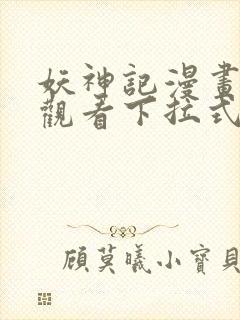 妖神記漫畫
觀看下拉式
顾莫曦小寶貝